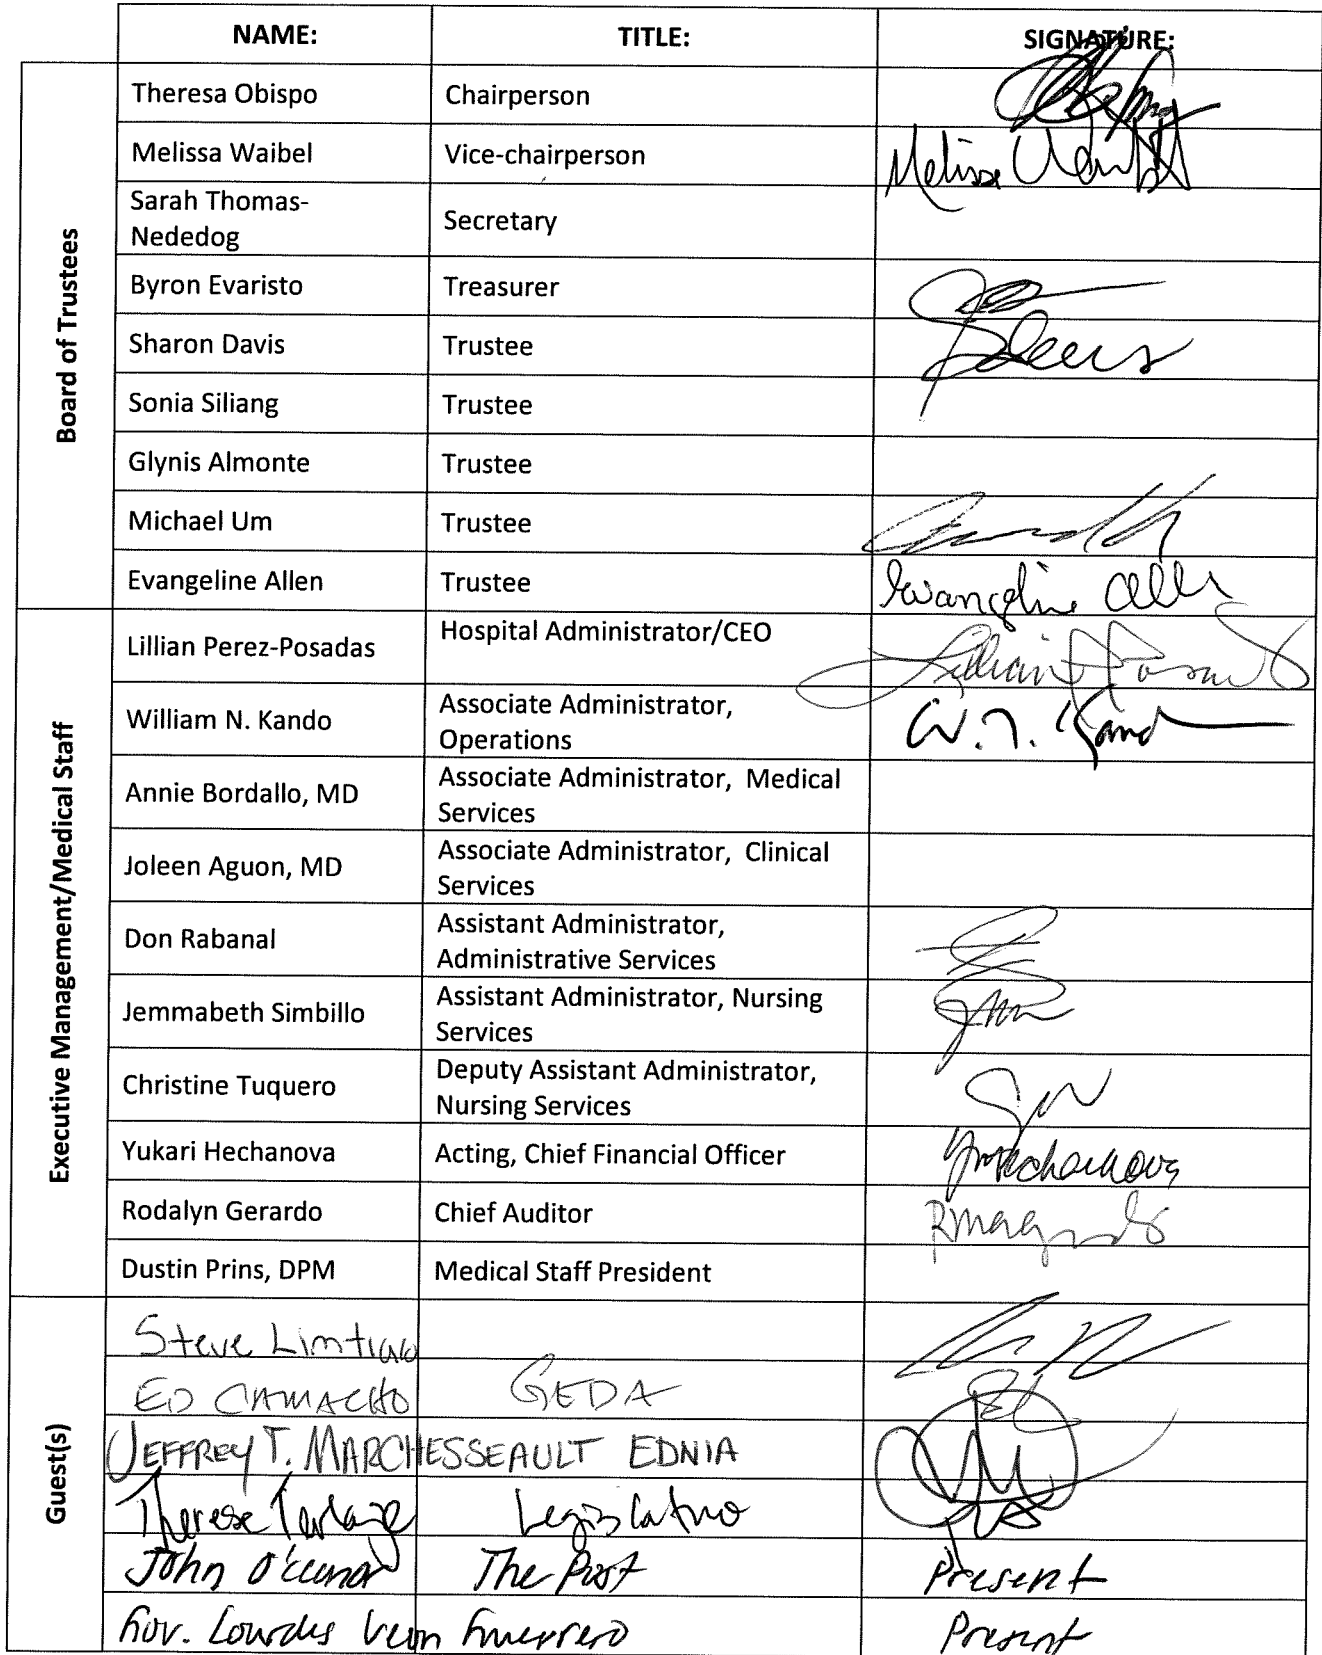 NAME: TITLE: SIGNATURE:
Board of Trustees
Theresa Obispo Chairperson
Melissa Waibel Vice-chairperson Melissa Waibel
Sarah Thomas-
Nededog Secretary
Byron Evaristo Treasurer
Sharon Davis Trustee
Sonia Siliang Trustee
Glynis Almonte Trustee
Michael Um Trustee
Evangeline Allen Trustee Evangeline Allen
Executive Management/Medical Staff
Lillian Perez-Posadas Hospital Administrator/CEO Lillian Posadas
William N. Kando Associate Administrator,
Operations W. N. Kando
Annie Bordallo, MD Associate Administrator, Medical
Services
Joleen Aguon, MD Associate Administrator, Clinical
Services
Don Rabanal Assistant Administrator,
Administrative Services
Jemmabeth Simbillo Assistant Administrator, Nursing
Services
Christine Tuquero Deputy Assistant Administrator,
Nursing Services
Yukari Hechanova Acting, Chief Financial Officer
Rodalyn Gerardo Chief Auditor
Dustin Prins, DPM Medical Staff President
Guest(s)
Steve Limtiaco
ED CAMACHO GEDA
JEFFREY T. MARCHESSEAULT EDNIA
Therese Terlaje Legislature
John O'Connor The Post Present
Gov. Lourdes Leon Guerrero Present